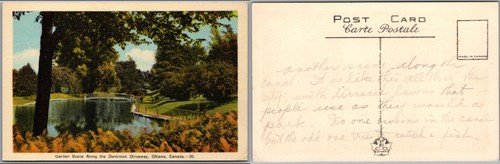 Garden Scene Along the Dominion Driveway, Ottawa, Canada.—20.
POST CARD
Carte Postale
MADE IN CANADA
another scene along the
canal. It is like this all thru the
city, with terraced lawns that
people use as they would a
park. No one swims in the canal
but the old one tries catch a fish.